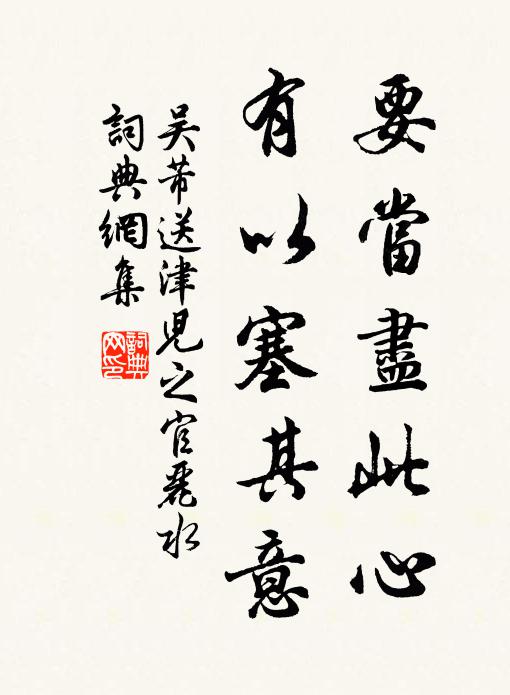 要當盡此心
有以塞其意
吳芾送津兒之官麗水
詞典網集
詞典網印